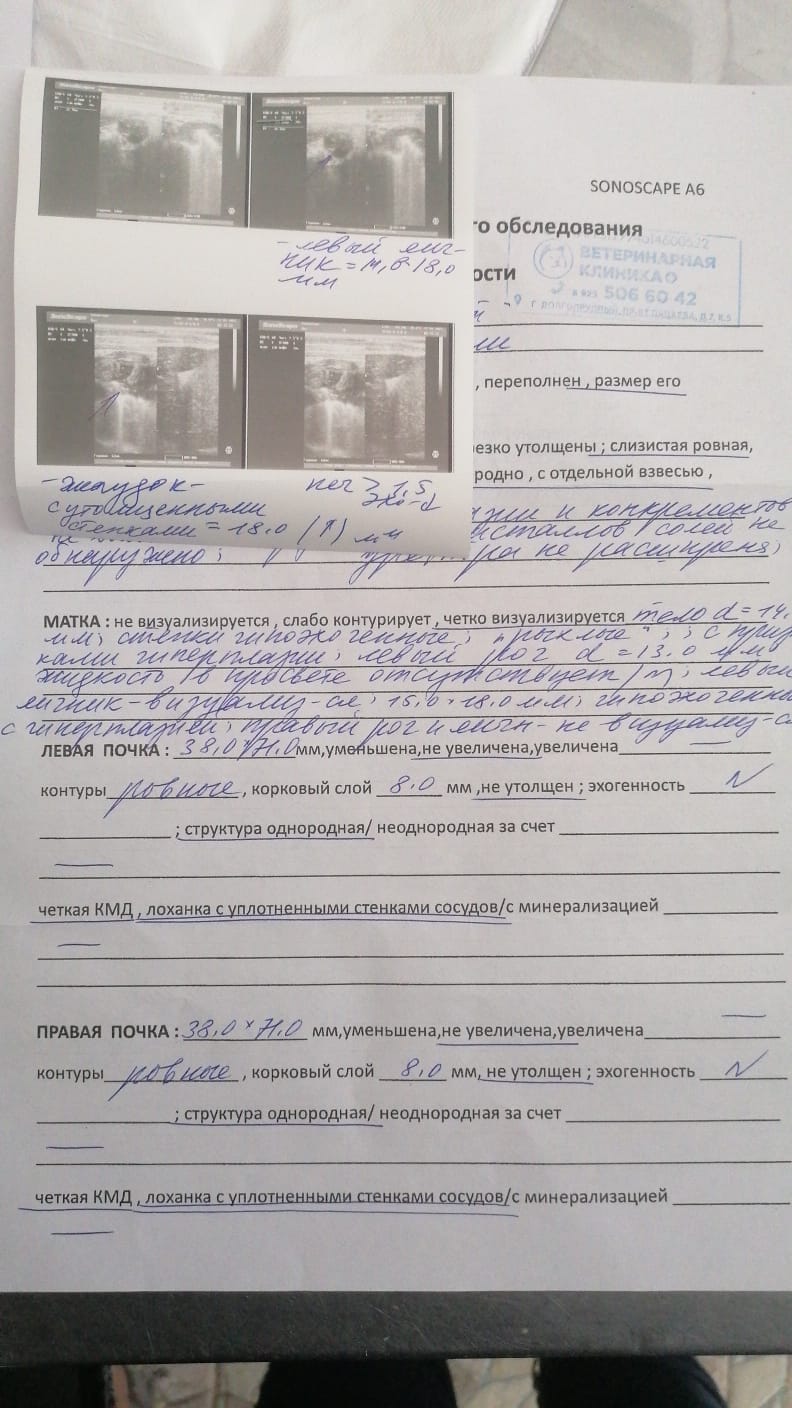 SONOSCAPE A6
го обследования
ВЕТЕРИНАРНАЯ
КЛИНИКА О
8 925 506 60 42
Г. ДОЛГОПРУДНЫЙ, ПР-КТ ПАЦАЕВА, Д.7, К.5
ости
- левый яич-
ник = 14,0 × 18,0
мм
, переполнен , размер его
езко утолщены ; слизистая ровная,
родно , с отдельной взвесью ,
- желудок -
с утолщенными
стенками = 18.0 (↑) мм
и конкрементов
солей не
обнаружено; уретра не расширена;
МАТКА : не визуализируется , слабо контурирует , четко визуализируется тело d = 14.
мм; стенки гипоэхогенные; "рыхлые"; с приз
ками гиперплазии; левый рог d = 13.0 мм
жидкость в просвете отсутствует; левый
яичник - визуализ-ся; 15.0 × 18.0 мм; гипоэхогенн
с гиперплазией; правый рог и яичн - не визуализ-с
ЛЕВАЯ ПОЧКА : 38,0 × 71.0 мм,уменьшена,не увеличена,увеличена
контуры ровные , корковый слой 8.0 мм ,не утолщен ; эхогенность N
; структура однородная/ неоднородная за счет
четкая КМД , лоханка с уплотненными стенками сосудов/с минерализацией
ПРАВАЯ ПОЧКА : 38,0 × 71.0 мм,уменьшена,не увеличена,увеличена
контуры ровные , корковый слой 8,0 мм, не утолщен ; эхогенность N
; структура однородная/ неоднородная за счет
четкая КМД , лоханка с уплотненными стенками сосудов/с минерализацией